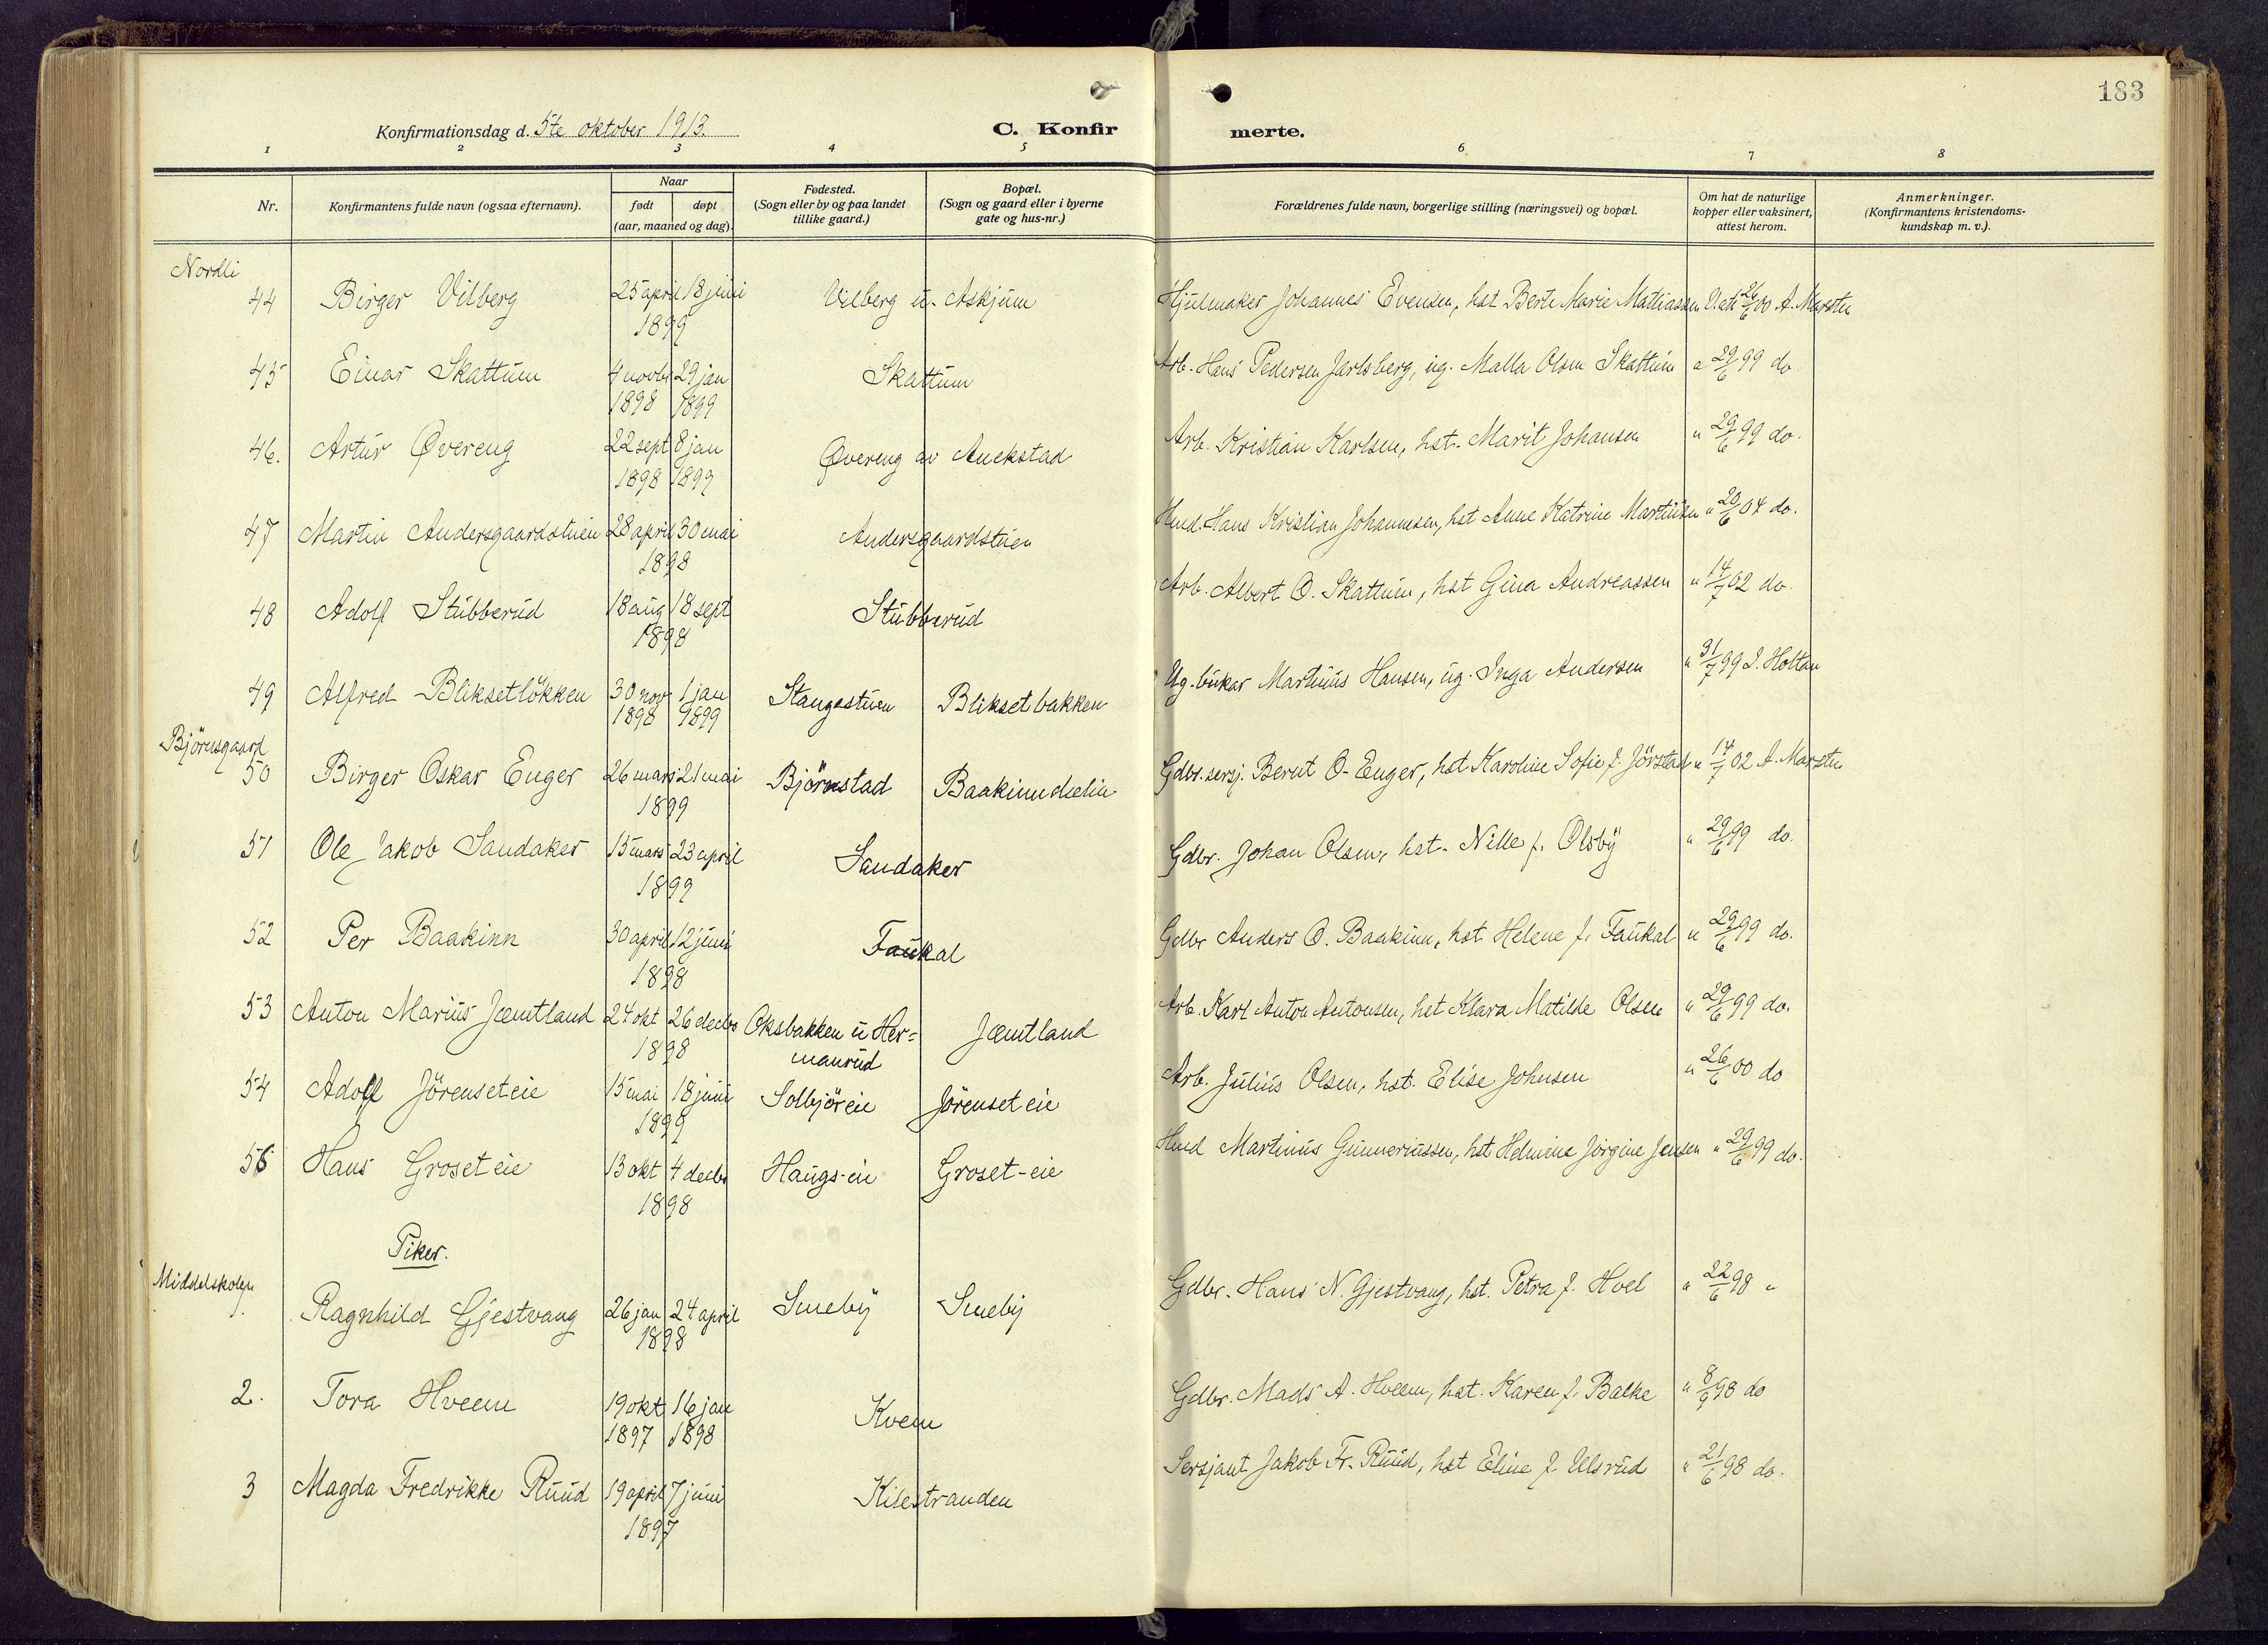 183
Konfirmationsdag d. 5te oktober 1913.
C. Konfir merte.
1 2 3 4 5 6 7 8
Nr.
Konfirmantens fulde navn (ogsaa efternavn).
Naar
født døpt
(aar, maaned og dag).
Fødested.
(Sogn eller by og paa landet
tillike gaard.)
Bopæl.
(Sogn og gaard eller i byerne
gate og hus-nr.)
Forældrenes fulde navn, borgerlige stilling (næringsvei) og bopæl.
Om hat de naturlige
kopper eller vaksinert,
attest herom.
Anmerkninger.
(Konfirmantens kristendoms-
kundskap m. v.).
Nordli
44 Birger Vilberg 25 april 18 juni Vilberg u. Askjum Hjulmaker Johannes Evensen, hst Berte Marie Matiassen V. att 26/6 00 A. Marsten
1899
45 Einar Skattum 4 novbr 29 jan Skattum Arb. Hans Pedersen Jarlsberg, ug. Malla Olsen Skattum " 29/6 99 do.
1898 1899
46. Artur Øvereng 22 sept 8 jan Øvereng av Anekstad Arb. Kristian Karlsen, hst. Marit Johansen " 29/6 99 do.
1898 1899
47 Martin Andersgaardstuen 28 april 30 mai Andersgaardstuen Hmd. Hans Kristian Johannesen, hst Anne Katrine Martinsen " 20/6 04 do.
1898
48 Adolf Stubberud 18 aug 18 sept Stubberud Arb. Albert O. Skattum, hst Gina Andreassen " 14/7 02 do.
1898
49 Alfred Bliksetløkken 30 nov 1 jan Stangestuen Bliksetbakken Ug. Martinus Hansen, ug. Inga Andersen " 31/7 99 J. Holtan
1898 1899
Bjørnsgaard
50 Birger Oskar Enger 26 mars 21 mai Bjørnstad Gdbr. sersj. Bernt O. Enger, hst Karoline Sofie f. Jørstad " 14/7 02 A. Marsten
1899
51 Ole Jakob Sandaker 15 mars 23 april Sandaker Gdbr. Johan Olsen, hst. Nille f. Olsby " 29/6 99 do.
1899
52 Per Baakinn 30 april 12 juni Faukal Gdbr Anders O. Baakinn, hst Helene f. Faukal " 29/6 99 do.
1898
53 Anton Marius Jæmtland 24 okt 26 decbr Oksbakken u Her= Jæmtland Arb. Karl Anton Antonsen, hst Klara Matilde Olsen " 29/6 99 do.
1898 manrud
54 Adolf Jørenseteie 15 mai 18 juni Solbjøreie Jørenseteie Arb. Julius Olsen, hst. Elise Johnsen " 26/6 00 do
1899
55 Hans Groseteie 13 okt 4 decbr Haugs-eie Groset-eie Hmd Martinus Gunneriussen, hst Helmine Jørgine Jensen " 29/6 99 do.
1898
Piker.
Middelskolen
1. Ragnhild Gjestvang 26 jan 24 april Smeby Smeby Gdbr. Hans N. Gjestvang, hst. Petra f. Hoel " 22/6 98 "
1898
2. Tora Hveem 19 okt 16 jan Kvem Gdbr. Mads A. Hveem, hst. Karen f. Balke " 8/9 98 do
1897 1898
3 Magda Fredrikke Ruud 19 april 7 juni Kisestranden Sersjant Jakob Fr. Ruud, hst Eline f. Ulsrud " 21/6 98 do.
1897